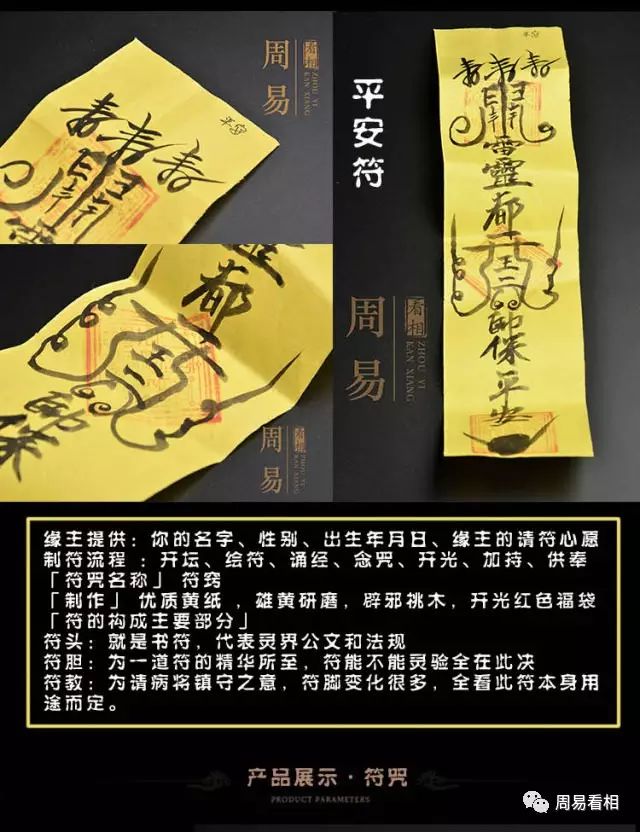 平安
周易
看相
ZHOU YI
KAN XIANG
靈都
保
平安符
平安
靈
都
保
平
安
周易
看相
ZHOU YI
KAN XIANG
周易
看相
ZHOU YI
KAN XIANG
缘主提供：你的名字、性别、出生年月日、缘主的请符心愿
制符流程 ：开坛、绘符、诵经、念咒、开光、加持、供奉
「符咒名称」 符窍
「制作」 优质黄纸 ，雄黄研磨，辟邪桃木，开光红色福袋
「符的构成主要部分」
符头：就是书符，代表灵界公文和法规
符胆：为一道符的精华所至，符能不能灵验全在此决
符教：为请病将镇守之意，符脚变化很多，全看此符本身用
途而定。
产品展示·符咒
PRODUCT PARAMETERS
周易看相